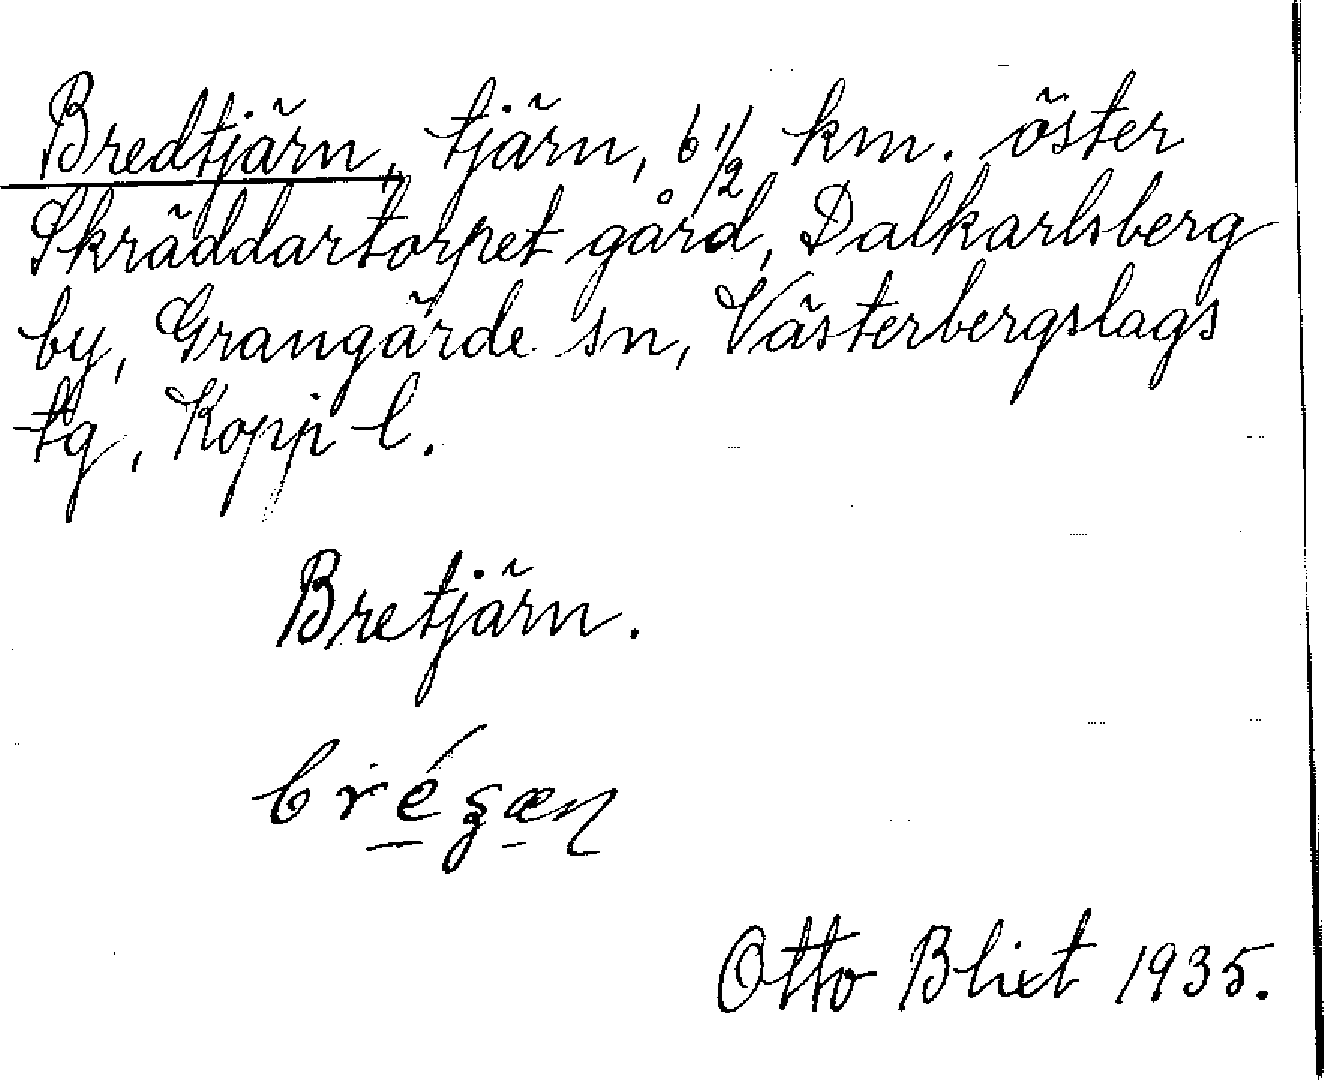 Bredtjärn, tjärn, 6 1/2 km. öster
Skräddartorpet gård, Dalkarlsberg
by, Grangärde sn, Västerbergslags
tg, Kopp l.
Bretjärn.
Otto Blixt 1935.